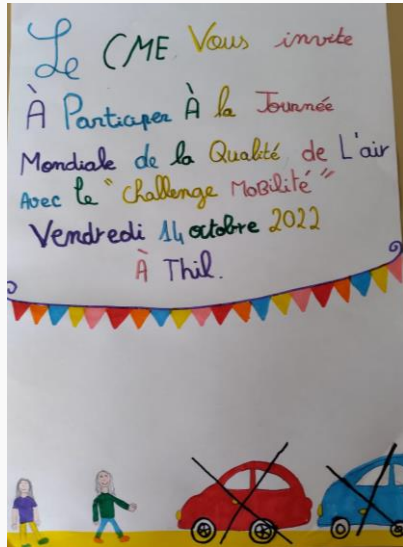 Le CME Vous invite
À Participer À la Journée
Mondiale de la Qualité de L'air
Avec le "Challenge MoBilité"
Vendredi 14 octobre 2022
À Thil.